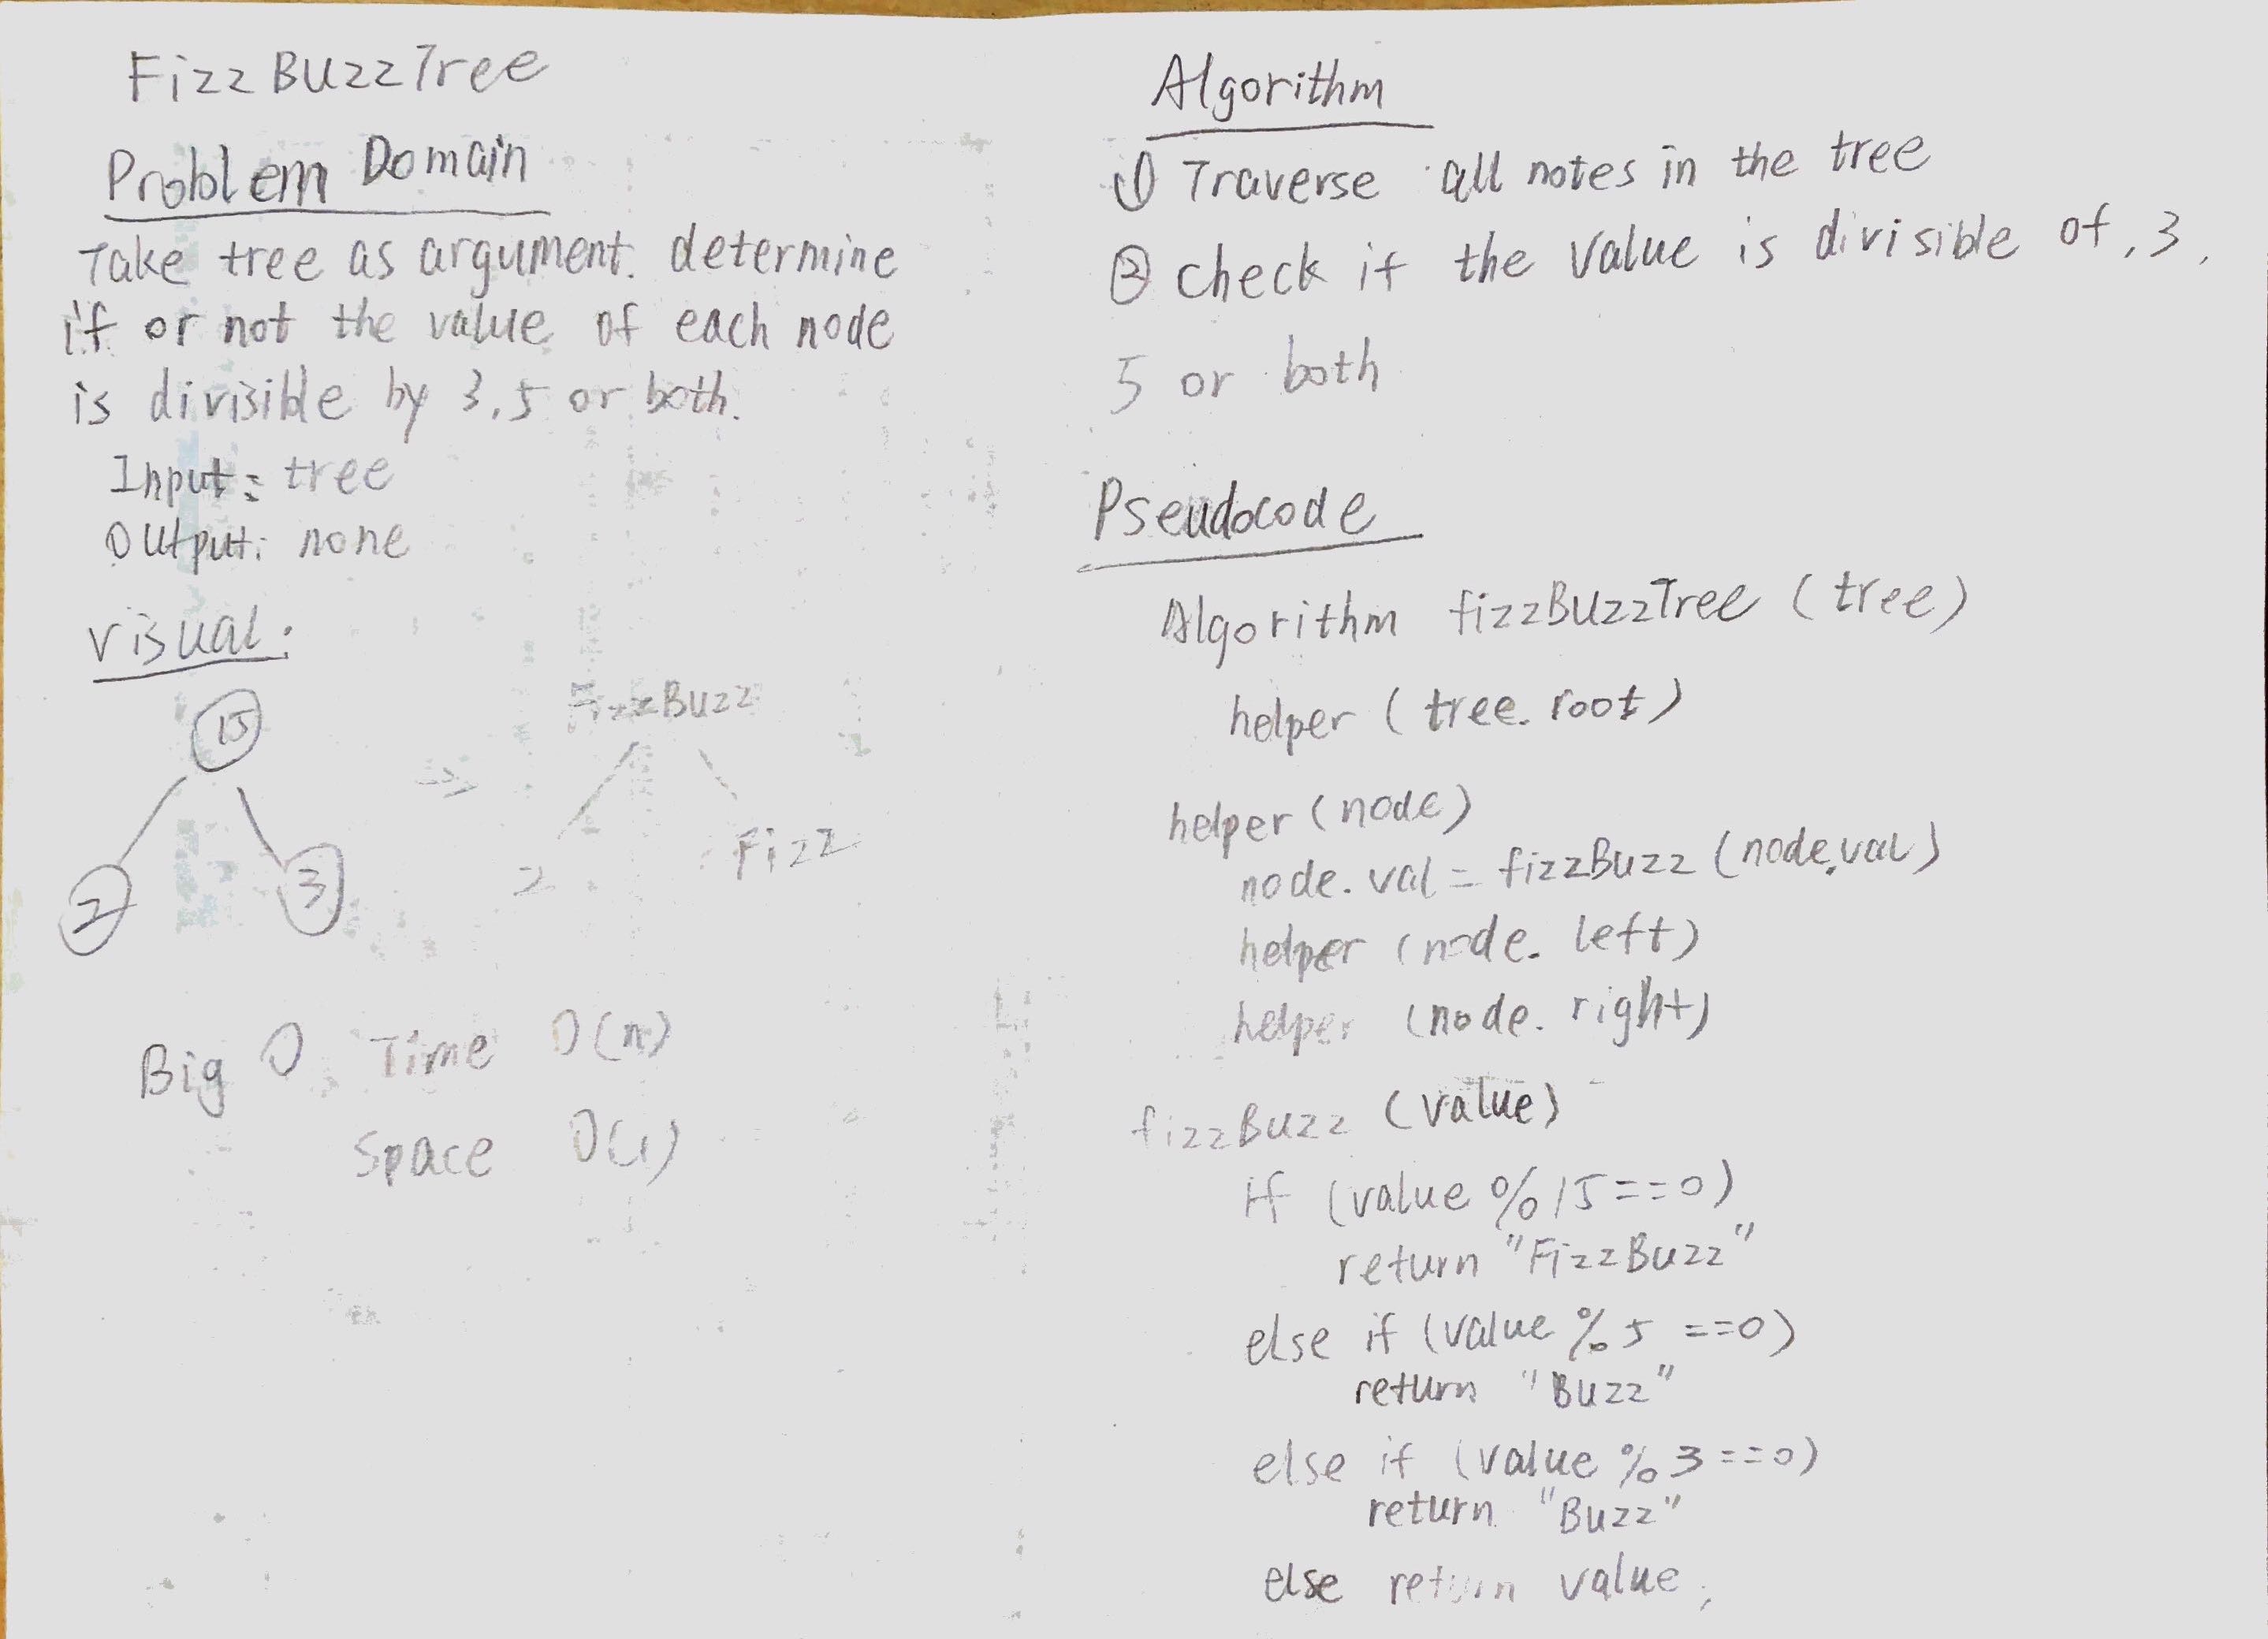 FizzBuzzTree
Problem Domain
Take tree as argument. determine
if or not the value of each node
is divisible by 3,5 or both.
Input: tree
Output: none
visual:
15
2
3
=>
FizzBuzz
2
Fizz
Big O Time O(n)
Space O(1)
Algorithm
① Traverse all notes in the tree
② check if the value is divisible of, 3,
5 or both
Pseudocode
Algorithm fizzBuzzTree (tree)
helper (tree. root)
helper (node)
node. val = fizzBuzz (node.val)
helper (node. left)
helper (node. right)
fizzBuzz (value)
if (value % 15 == 0)
return "FizzBuzz"
else if (value % 5 == 0)
return "Buzz"
else if (value % 3 == 0)
return "Buzz"
else return value;